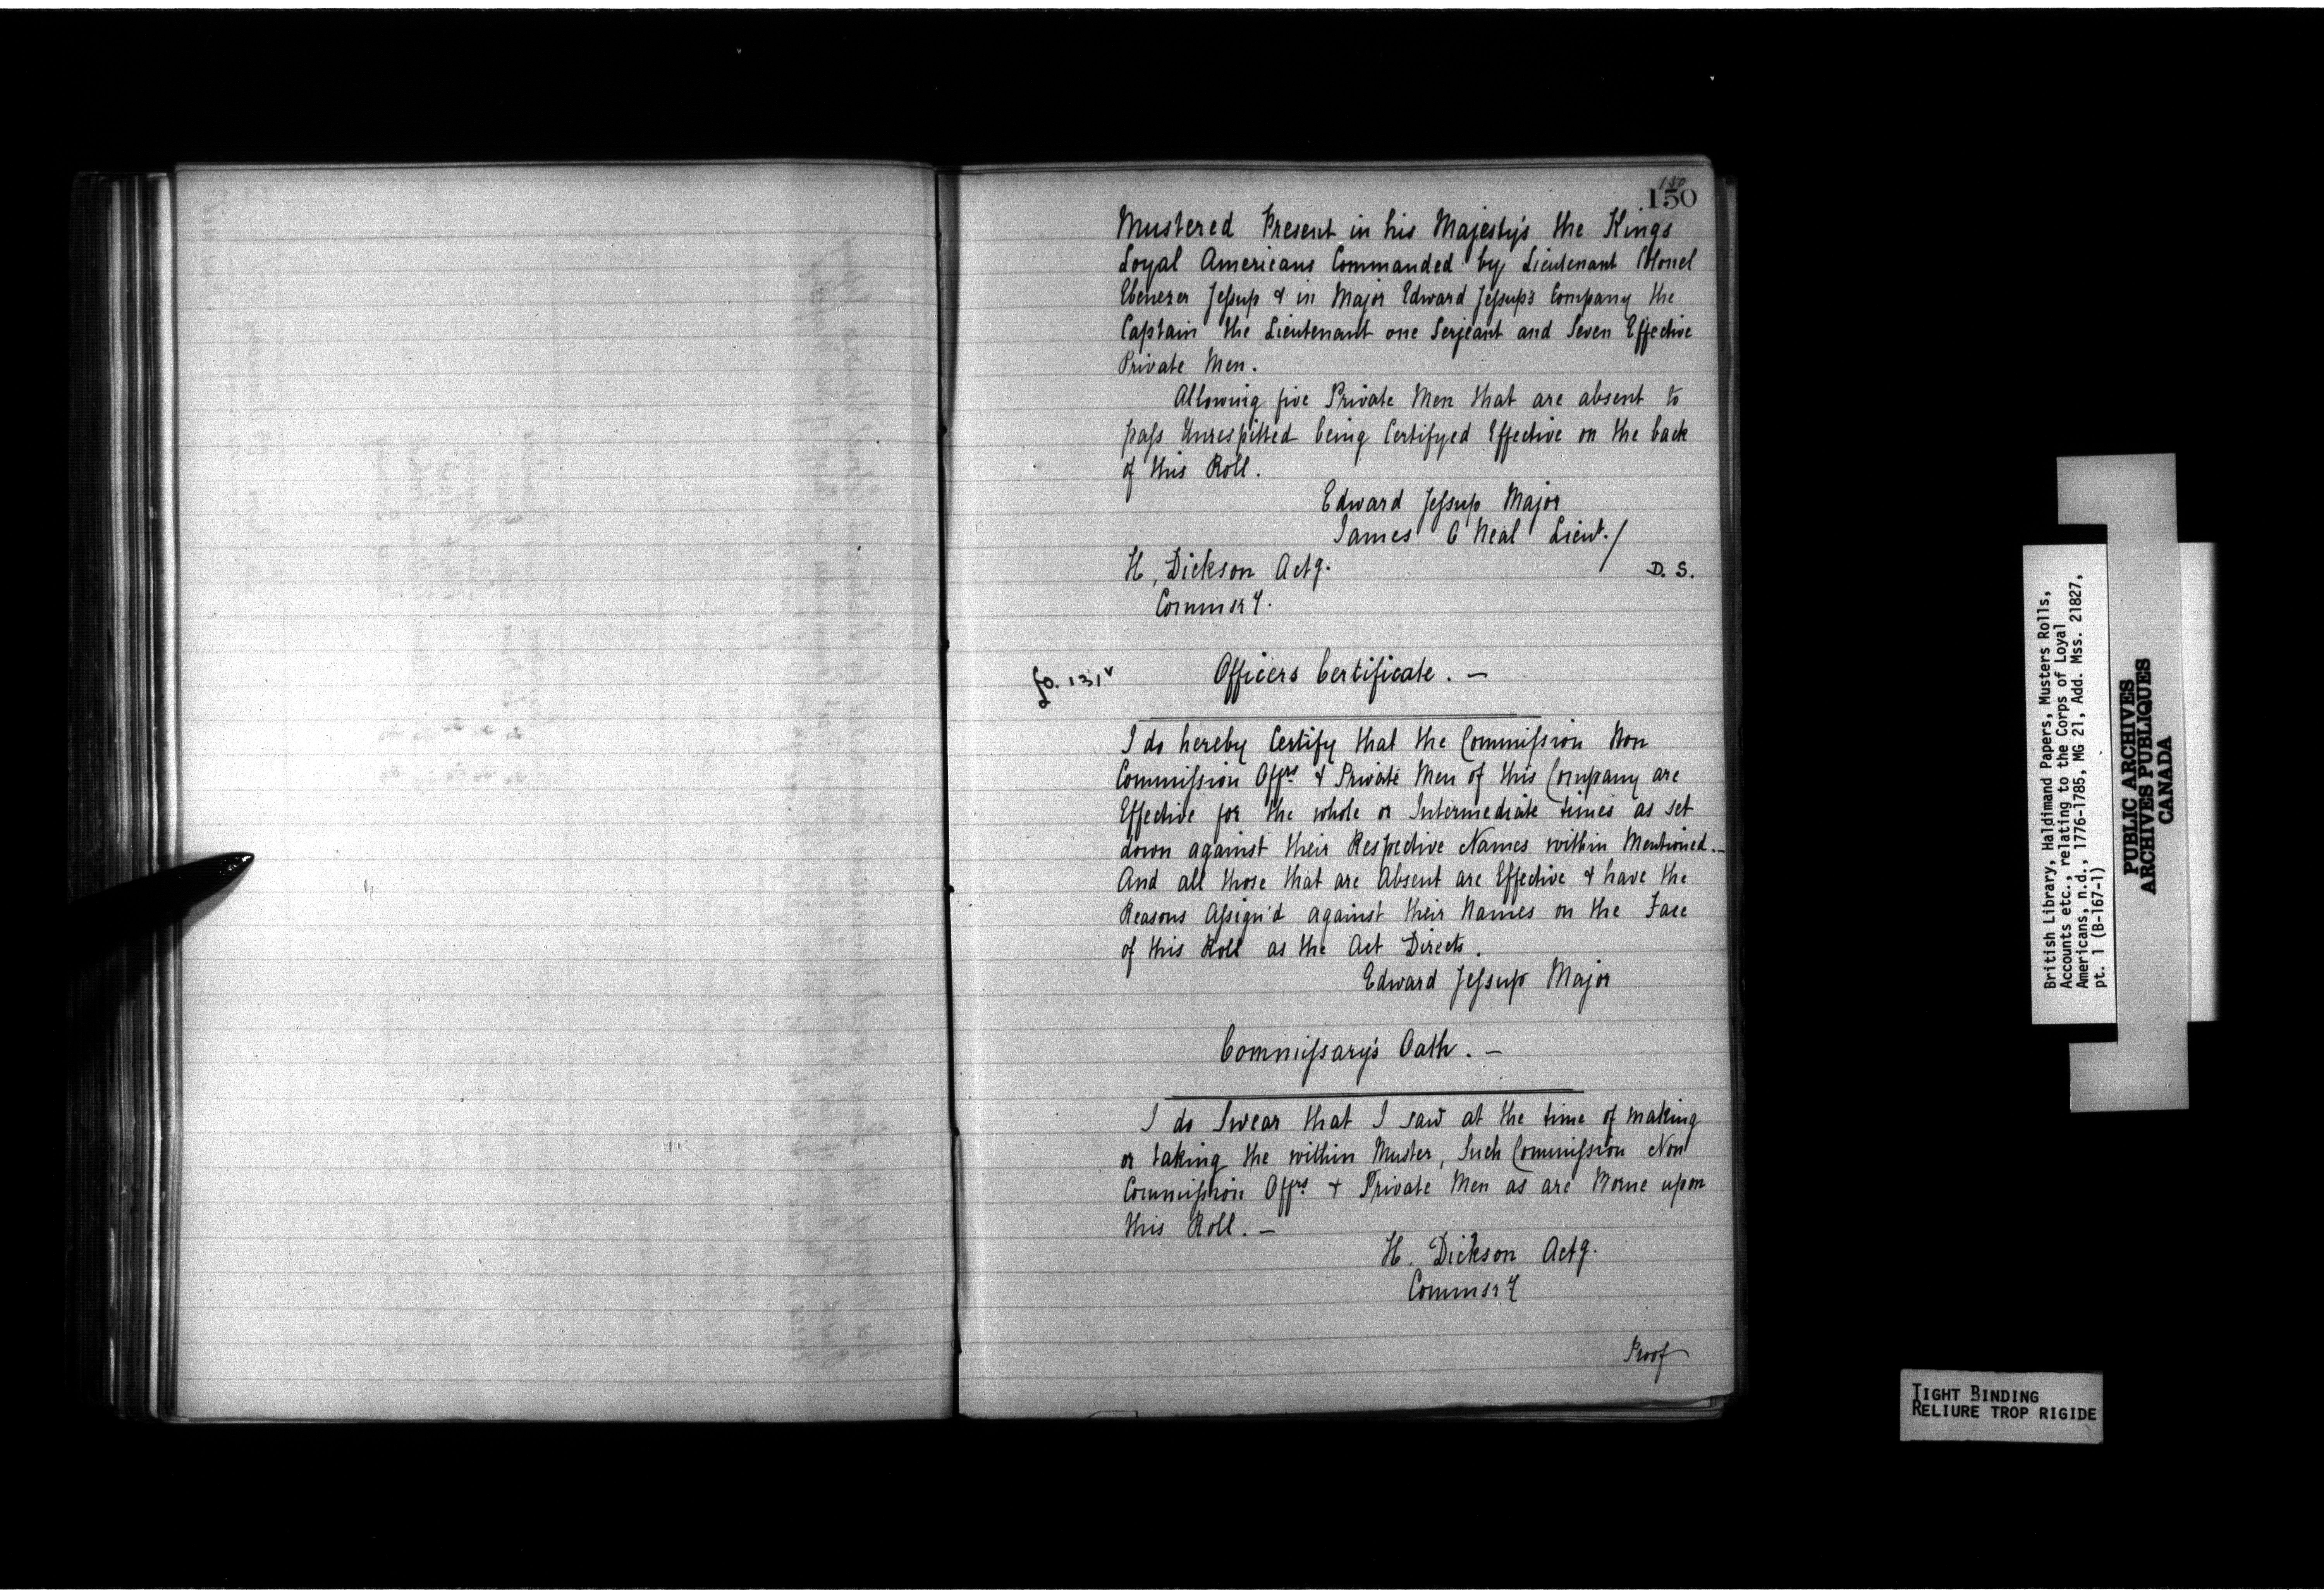 150
150
Mustered Present in his Majesty's the Kings
Loyal Americans Commanded by Lieutenant Colonel
Ebenezer Jeſsup & in Major Edward Jeſsup's Company the
Captain the Lieutenant one Serjeant and Seven Effective
Private Men.
Allowing five Private Men that are absent to
paſs Unrespitted being Certifyed Effective on the back
of this Roll.
Edward Jeſsup Major
James O Neal Lieut. /
H, Dickson Actg. D. S.
Commsry.
fo. 131v Officers Certificate. —
I do hereby Certify that the Commiſsion Non
Commiſsion Offrs. & Private Men of this Company are
Effective for the whole or Intermediate times as set
down against their Respective Names within Mentioned. —
And all those that are Absent are Effective & have the
Reasons Aſsign'd against their Names on the Face
of this Roll as the Act Directs.
Edward Jeſsup Major
Commiſsary's Oath. —
I do Swear that I saw at the time of making
or taking the within Muster, Such Commiſsion Non
Commiſsion Offrs. + Private Men as are Borne upon
this Roll. —
H. Dickson Actg.
Commsry
Proof
British Library, Haldimand Papers, Musters Rolls,
Accounts etc., relating to the Corps of Loyal
Americans, n.d., 1776-1785, MG 21, Add. Mss. 21827,
pt. 1 (B-167-1)
PUBLIC ARCHIVES
ARCHIVES PUBLIQUES
CANADA
TIGHT BINDING
RELIURE TROP RIGIDE